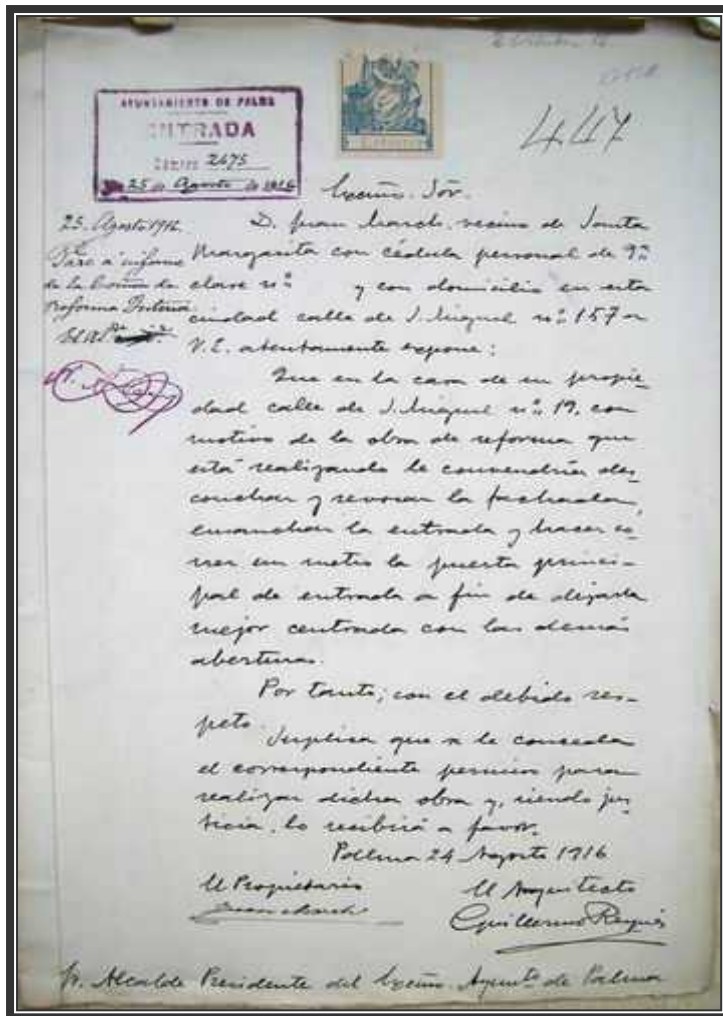 447
AYUNTAMIENTO DE PALMA
ENTRADA
Número 2675
25 de Agosto de 1916
Excmo. Sör.
25. Agosto 1916
Pase a informe
de la Comón de
Reforma Interior
El Al.
D. Juan March, vecino de Santa
Margarita con cédula personal de 9ª
clase nº y con domicilio en esta
ciudad calle de S. Miguel nº 157 a
V.E. atentamente expone:
Que en la casa de su propie-
dad calle de S. Miguel nº 19, con
motivo de la obra de reforma que
está realizando le convendría des-
conchar y revocar la fachada,
ensanchar la entrada y hacer co-
rrer un metro la puerta princi-
pal de entrada a fin de dejarla
mejor centrada con las demás
aberturas.
Por tanto; con el debido res-
peto.
Suplica que se le conceda
el correspondiente permiso para
realizar dicha obra y, siendo jus-
ticia, lo recibirá a favor.
Palma 24 Agosto 1916
El Propietario
El Arquitecto
Juan March
Guillermo Reynés
Sr. Alcalde Presidente del Excmo. Ayuntº de Palma